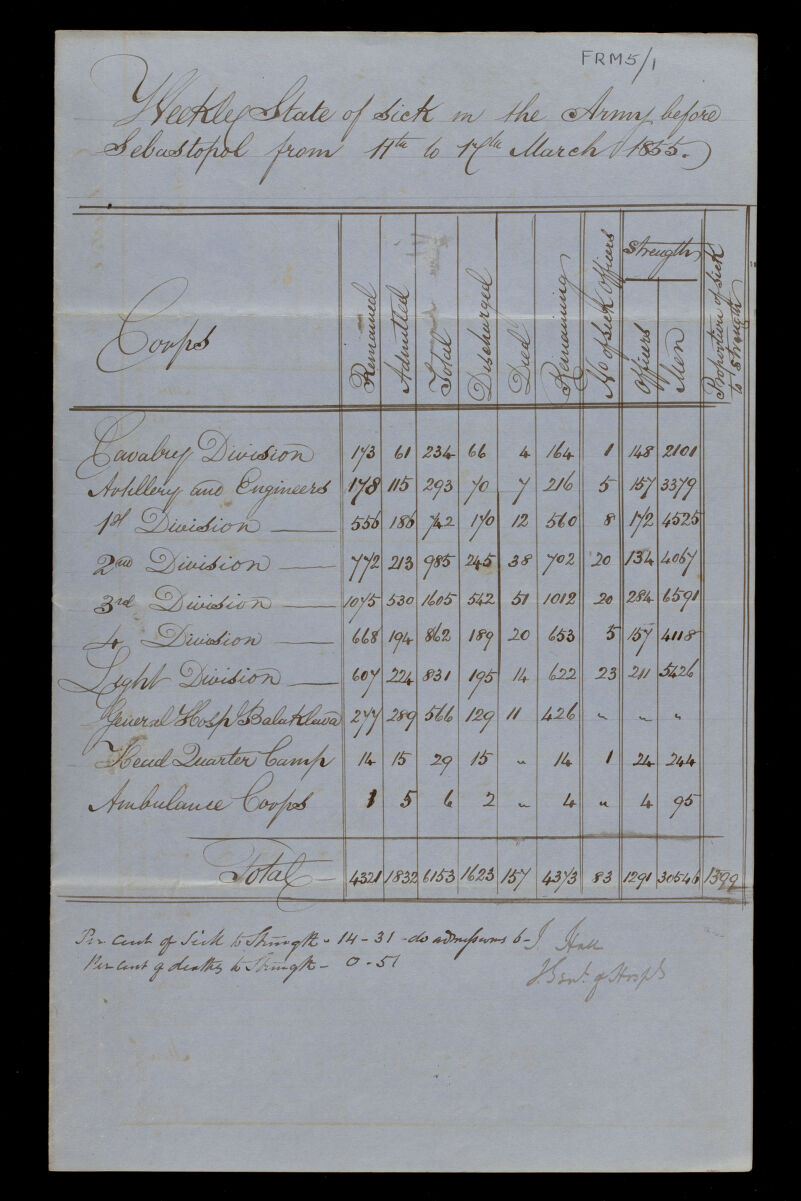 FRM5/1
Weekly State of Sick in the Army before
Sebastopol from 11th to 17th March 1855.
Corps Remained Admitted Total Discharged Died Remaining No of Sick Officers Strength Officers Men Proportion of Sick to Strength
Cavalry Division 173 61 234 66 4 164 1 148 2101
Artillery and Engineers 178 115 293 70 7 216 5 157 3379
1st Division 556 186 742 170 12 560 8 172 4525
2nd Division 772 213 985 245 38 702 20 134 4067
3rd Division 1075 530 1605 542 51 1012 20 284 6591
4 Division 668 194 862 189 20 653 5 157 4118
Light Division 607 224 831 195 14 622 23 211 5426
General Hosp Balaklava 277 289 566 129 11 426 " " "
Head Quarter Camp 14 15 29 15 " 14 1 24 244
Ambulance Corps 1 5 6 2 " 4 " 4 95
Total 4321 1832 6153 1623 157 4373 83 1291 30546 1399
Per cent of Sick to Strength - 14-31 - do admissions 6-
J. Hall
Per cent of deaths to Strength - 0-51